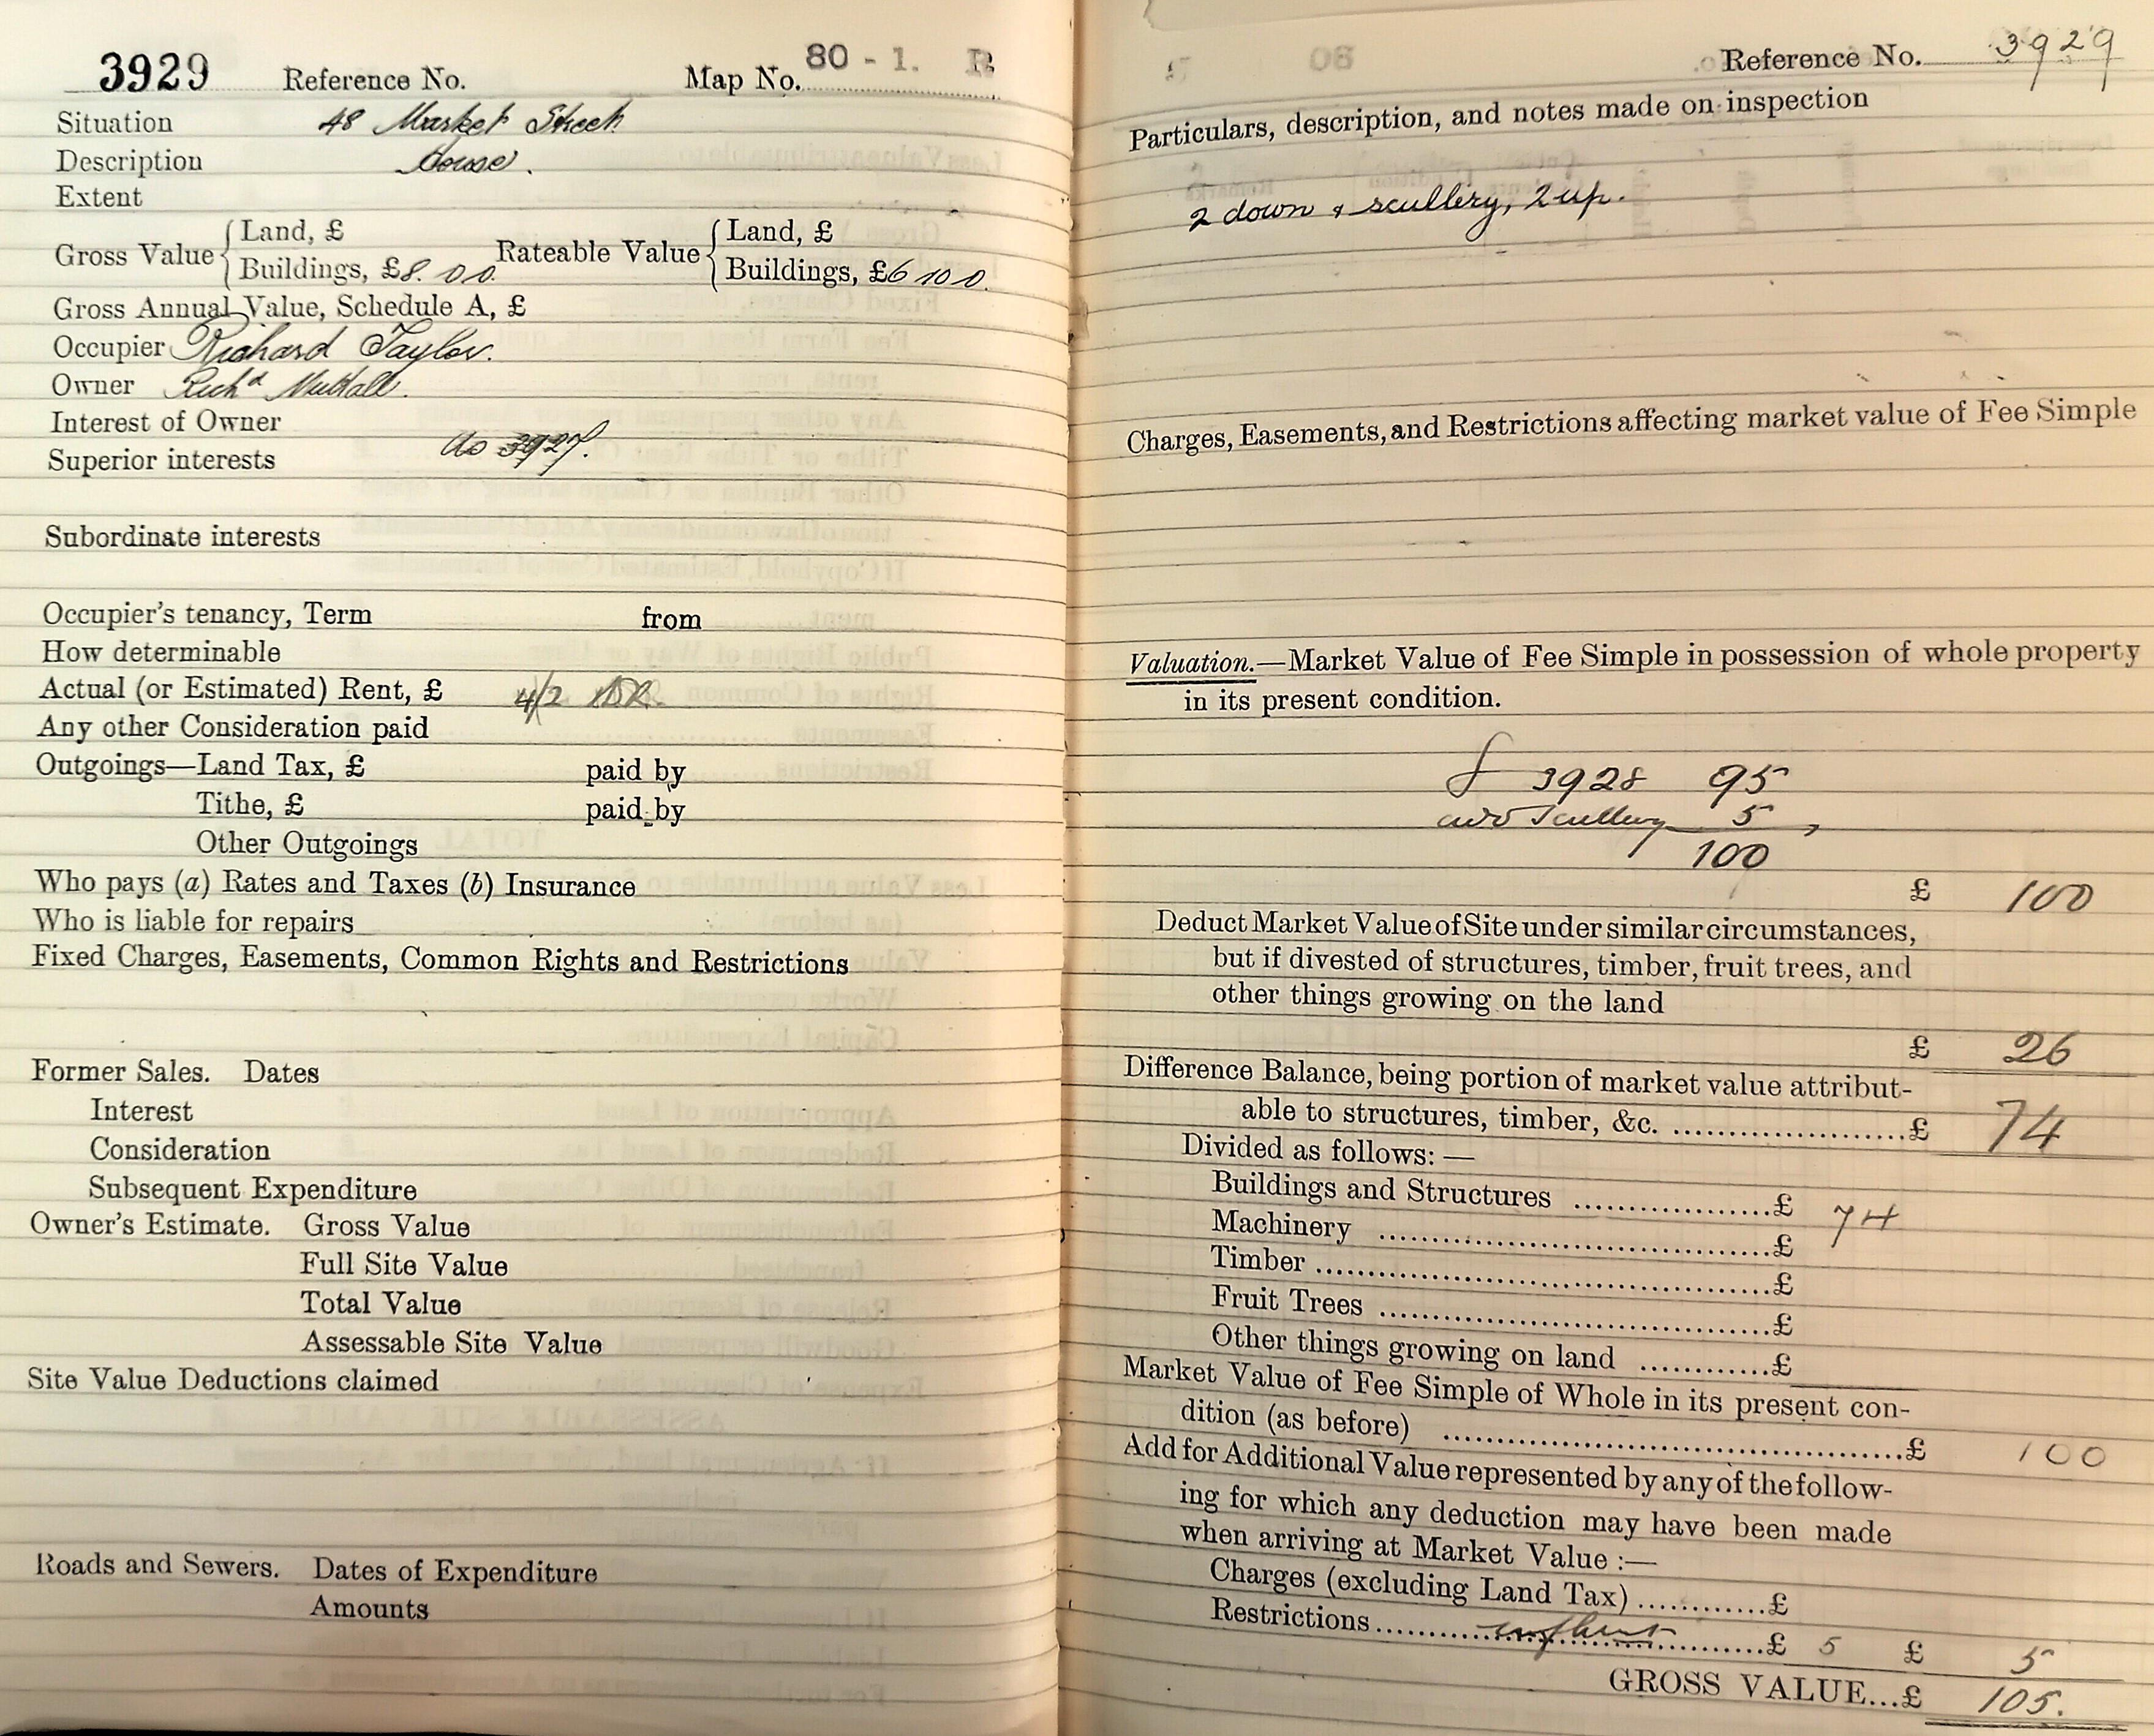 3929 Reference No. Map No. 80 - 1. R
Situation 48 Market Street
Description House.
Extent
Gross Value { Land, £ Rateable Value { Land, £
Buildings, £8. 0 0. Buildings, £6 10 0.
Gross Annual Value, Schedule A, £
Occupier Richard Taylor.
Owner Richd
Interest of Owner
do 3927.
Superior interests
Subordinate interests
Occupier's tenancy, Term from
How determinable
Actual (or Estimated) Rent, £ 4/2
Any other Consideration paid
Outgoings—Land Tax, £ paid by
Tithe, £ paid by
Other Outgoings
Who pays (a) Rates and Taxes (b) Insurance
Who is liable for repairs
Fixed Charges, Easements, Common Rights and Restrictions
Former Sales. Dates
Interest
Consideration
Subsequent Expenditure
Owner's Estimate. Gross Value
Full Site Value
Total Value
Assessable Site Value
Site Value Deductions claimed
Roads and Sewers. Dates of Expenditure
Amounts
Reference No. 3929
Particulars, description, and notes made on inspection
2 down & scullery, 2 up.
Charges, Easements, and Restrictions affecting market value of Fee Simple
Valuation.—Market Value of Fee Simple in possession of whole property
in its present condition.
3928 95
add Scullery 5
100
£ 100
Deduct Market Value of Site under similar circumstances,
but if divested of structures, timber, fruit trees, and
other things growing on the land
£ 26
Difference Balance, being portion of market value attribut-
able to structures, timber, &c. ......................£ 74
Divided as follows: —
Buildings and Structures ...................£ 74
Machinery .......................................£
Timber .............................................£
Fruit Trees .......................................£
Other things growing on land ............£
Market Value of Fee Simple of Whole in its present con-
dition (as before) ..............................................£ 100
Add for Additional Value represented by any of the follow-
ing for which any deduction may have been made
when arriving at Market Value :—
Charges (excluding Land Tax) .............£
Restrictions.......................................£ 5 £ 5
GROSS VALUE...£ 105.